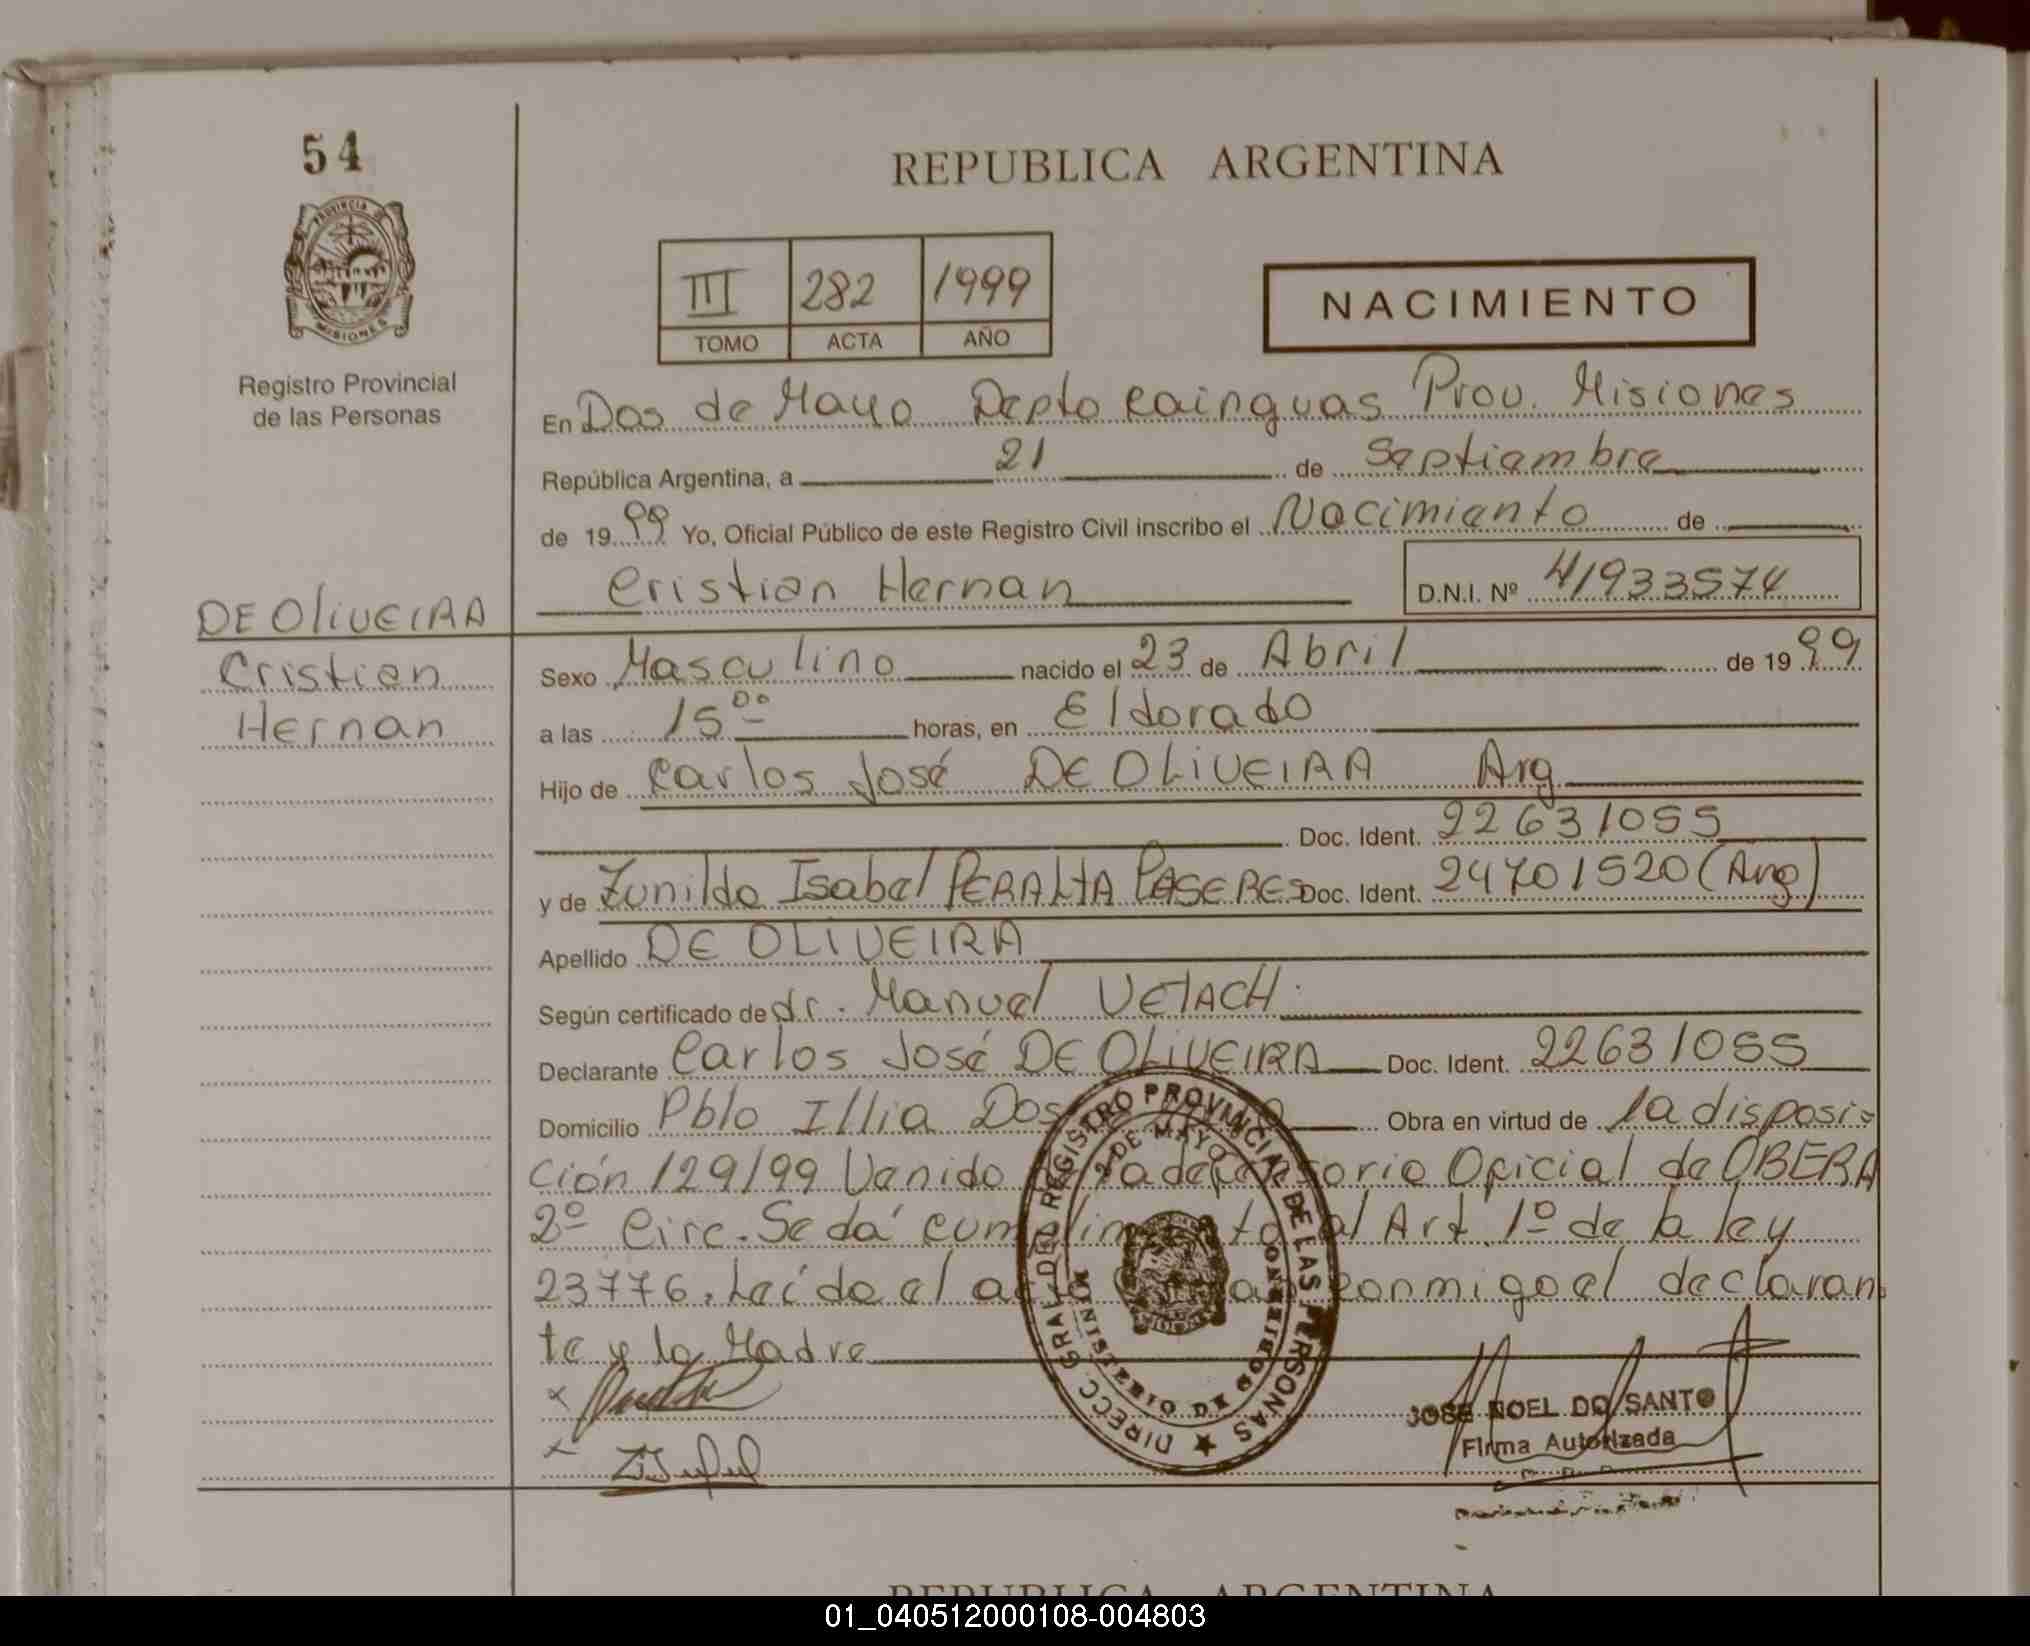 54
REPUBLICA ARGENTINA
PROVINCIA DE
MISIONES
III 282 1999
TOMO ACTA AÑO
NACIMIENTO
Registro Provincial
de las Personas
En Dos de Mayo Depto Cainguas Prov. Misiones
República Argentina, a 21 de Septiembre
de 1999 Yo, Oficial Público de este Registro Civil inscribo el Nacimiento de
Cristian Hernan D.N.I. Nº 41933574
DE OLIVEIRA
Cristian
Hernan
Sexo Masculino nacido el 23 de Abril de 1999
a las 15 00 horas, en Eldorado
Hijo de Carlos José DE OLIVEIRA Arg
Doc. Ident. 22631055
y de Zunilda Isabel PERALTA Doc. Ident. 24701520 (Arg)
Apellido DE OLIVEIRA
Según certificado de dr. Manuel
Declarante Carlos José DE OLIVEIRA Doc. Ident. 22631055
Domicilio Pblo Illia Dos Obra en virtud de la disposi=
ción 129/99 Venido Oficial de OBERA
2º Circ. Se dá cumplimiento al Art. 1º de la ley
23776. Leída el acta conmigo el declaran
te y la Madre
DIRECC GRAL DEL REGISTRO PROVINCIAL DE LAS PERSONAS
2 DE MAYO
MINISTERIO DE GOBIERNO
JOSE NOEL DO SANTO
Firma Autorizada
REPUBLICA ARGENTINA
01_040512000108-004803